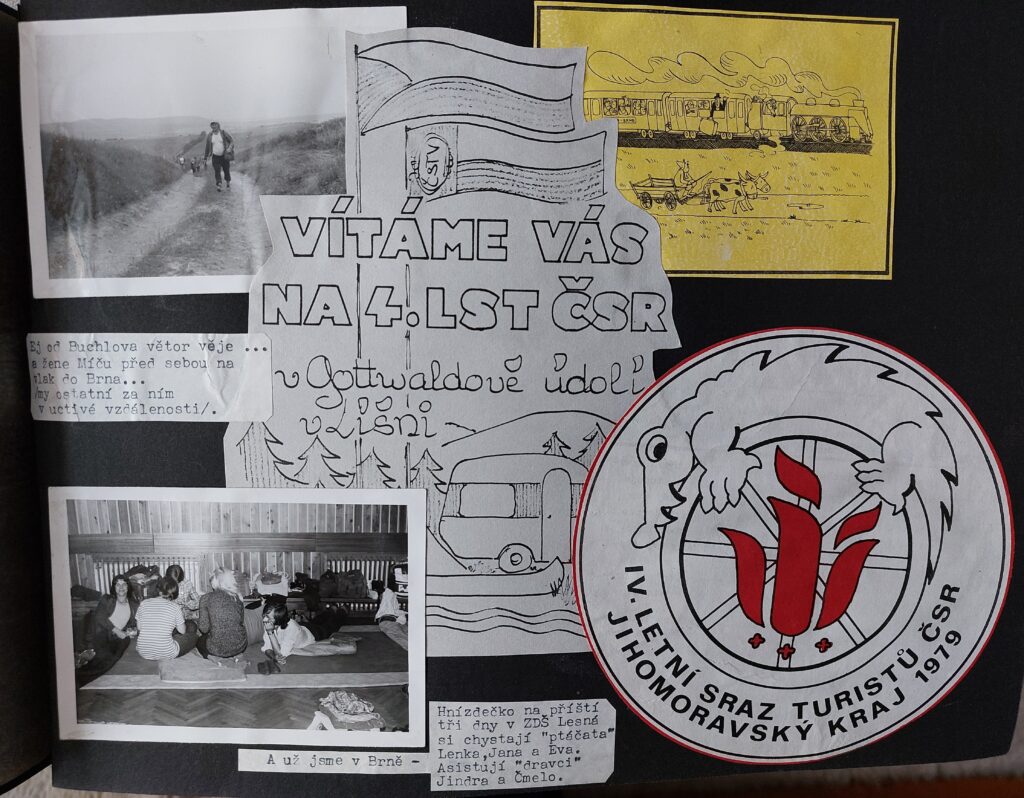 ČSTV
VÍTÁME VÁS
NA 4. LST ČSR
v Gottwaldově údolí
v Líšni
Ej od Buchlova větor věje ...
a žene Míču před sebou na
vlak do Brna...
/my ostatní za ním
v uctivé vzdálenosti/.
IV. LETNÍ SRAZ TURISTŮ ČSR
JIHOMORAVSKÝ KRAJ 1979
A už jsme v Brně -
Hnízdečko na příští
tři dny v ZDŠ Lesná
si chystají "ptáčata"
Lenka,Jana a Eva.
Asistují "dravci"
Jindra a Čmelo.